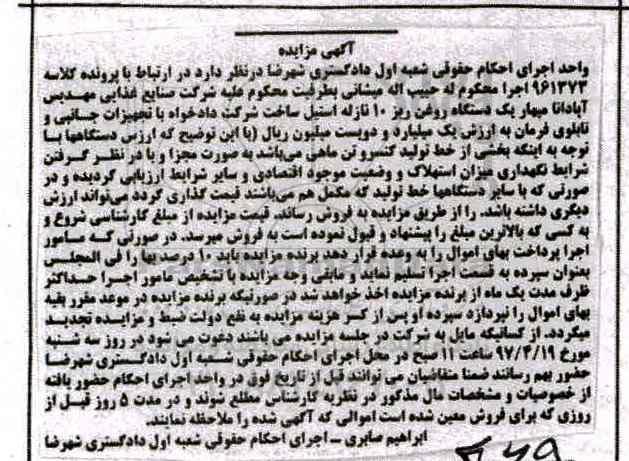 آگهی مزایده
واحد اجرای احکام حقوقی شعبه اول دادگستری شهرضا درنظر دارد در ارتباط با پرونده کلاسه
۹۶۱۲۷۳ اجرا محکوم له حبیب اله میشانی بطرفیت محکوم علیه شرکت صنایع غذایی مهدیس
آپادانا میهار یک دستگاه روغن ریز ۱۰ نازله استیل ساخت شرکت دادخواه با تجهیزات جانبی و
تابلوی فرمان به ارزش یک میلیارد و دویست میلیون ریال (با این توضیح که ارزش دستگاهها با
توجه به اینکه بخشی از خط تولید کنسرو تن ماهی می‌باشد به صورت مجزا و با در نظر گرفتن
شرایط نگهداری میزان استهلاک و وضعیت موجود اقتصادی و سایر شرایط ارزیابی گردیده و در
صورتی که با سایر دستگاهها خط تولید که مکمل هم می‌باشند قیمت گذاری گردد می‌تواند ارزش
دیگری داشته باشد. را از طریق مزایده به فروش رساند. قیمت مزایده از مبلغ کارشناسی شروع و
به کسی که بالاترین مبلغ را پیشنهاد و قبول نموده است به فروش میرسد. در صورتی که مامور
اجرا پرداخت بهای اموال را به وعده قرار دهد برنده مزایده باید ۱۰ درصد بها را فی المجلس
بعنوان سپرده به قسمت اجرا تسلیم نماید و مابقی وجه مزایده با تشخیص مامور اجرا حداکثر
ظرف مدت یک ماه از برنده مزایده اخذ خواهد شد در صورتیکه برنده مزایده در موعد مقرر بقیه
بهای اموال را نپردازد سپرده او پس از کسر هزینه مزایده به نفع دولت ضبط و مزایده تجدید
میگردد. از کسانیکه مایل به شرکت در جلسه مزایده می باشند دعوت می شود در روز سه شنبه
مورخ ۹۷/۴/۱۹ ساعت ۱۱ صبح در محل اجرای احکام حقوقی شعبه اول دادگستری شهرضا
حضور بهم رسانند ضمنا متقاضیان می توانند قبل از تاریخ فوق در واحد اجرای احکام حضور یافته
از خصوصیات و مشخصات مال مذکور در نظریه کارشناس مطلع شوند و در مدت ۵ روز قبل از
روزی که برای فروش معین شده است اموالی که آگهی شده را ملاحظه نمایند.
ابراهیم صابری ــ اجرای احکام حقوقی شعبه اول دادگستری شهرضا